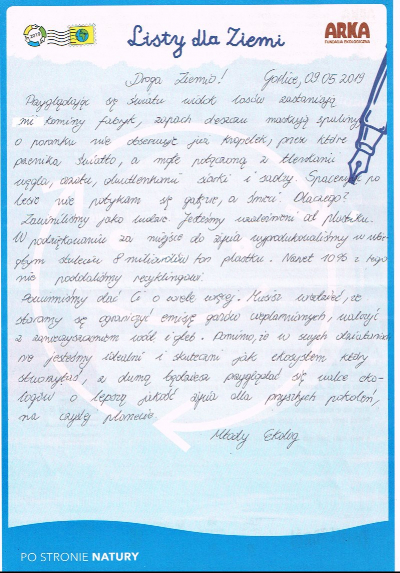 Listy dla Ziemi
ARKA
FUNDACJA EKOLOGICZNA
Droga Ziemio! Gorlice, 09.05.2019
Przyglądając się światu widok lasów zasłaniają
mi kominy fabryk, zapach deszczu maskują spaliny,
o poranku nie obserwuję już kropelek, przez które
przenika światło, a mgłę połączoną z tlenkami
węgla, azotu, dwutlenkami siarki i sadzy. Spacerując po
lesie nie potykam się o gałęzie, a śmieci. Dlaczego?
Zawiniliśmy jako ludzie. Jesteśmy uzależnieni od plastiku.
W podziękowaniu za miejsce do życia wyprodukowaliśmy w ubie-
głym stuleciu 8 miliardów ton plastiku. Nawet 10% z tego
nie poddaliśmy recyklingowi.
Powinniśmy dać Ci o wiele więcej. Musisz wiedzieć, że
staramy się ograniczyć emisję gazów cieplarnianych, walczyć
z zanieczyszczeniem wód i gleb. Pomimo, że w swych działaniach
nie jesteśmy idealni i skuteczni jak ekosystem kiedy
stworzyłaś, z dumą będziesz przyglądać się walce eko-
logów o lepszą jakość życia dla przyszłych pokoleń,
na czystej planecie.
Młody Ekolog
PO STRONIE NATURY